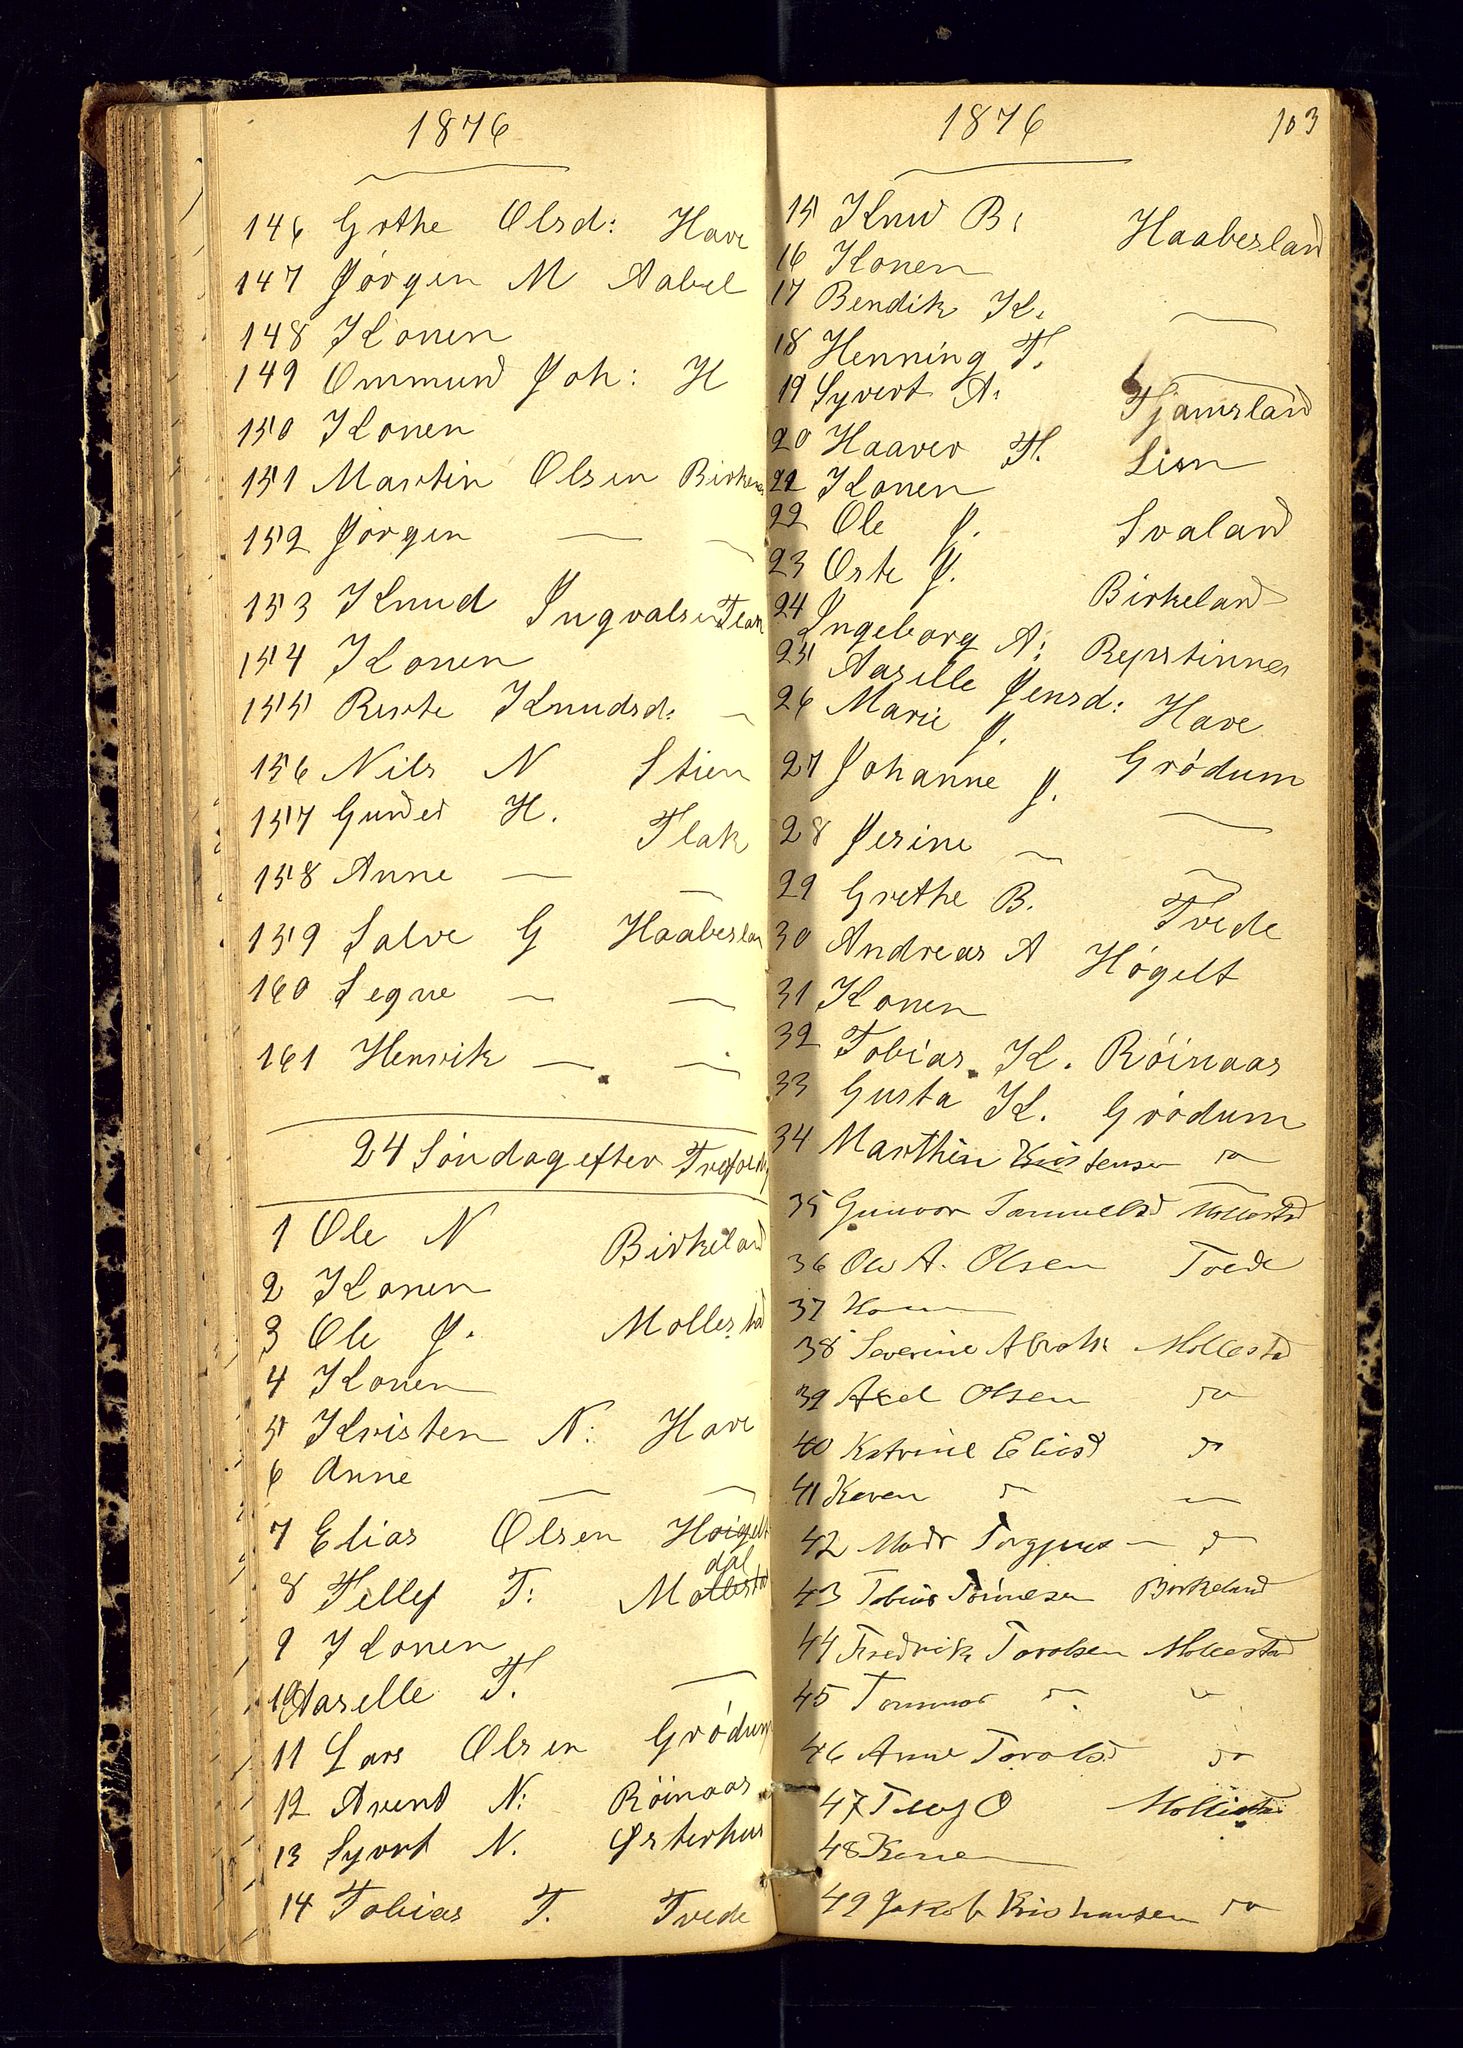 1876
146 Grthe Olsd: Have
147 Jørgen M Aabel
148 Konen
149 Ommund Joh: H
150 Konen
151 Martin Olsen Birkenes
152 Jørgen — —
153 Knud Ingvalsen Flak
154 Konen
155 Berte Knudsd: —
156 Nils N Stien
157 Gunder H. Flak
158 Anne — —
159 Salve G Haabeslan
160 Segne — —
161 Henrik — —
24 Søndag efter Trefoldig
1 Ole N Birkeland
2 Konen
3 Ole J. Mollestad
4 Konen
5 Kristen N: Have
6 Anne — —
7 Elias Olsen Høigelt
8 Tellef T: Mollestad dal
9 Konen
10 Aaselle T. —
11 Lars Olsen Grödum
12 Avend N: Röinaas
13 Syvert N. Østerhus
14 Tobias T. Tvede
1876 103
15 Knud B: Haabesland
16 Konen
17 Bendik K. —
18 Henning T. —
19 Syvert A. Tjamsland
20 Haaver T. Lien
21 Konen
22 Ole J. Svaland
23 Oste J. Birkeland
24 Ingeborg A: Repstinnes
25 Aaselle Jensd: Have
26 Marie J. Grödum
27 Johanne J. —
28 Jesine — —
29 Grethe B. Tvede
30 Andreas A Høgelt
31 Konen
32 Tobias K. Röinaas
33 Gusta K. Grödum
34 Marthin Kristensen do
35 Gunvor Samuelsd Mollestad
36 Ole A. Olsen Tvede
37 Konen
38 Severine Abrah: Mollestad
39 Axel Olsen do
40 Katrine Eliasd do
41 Karen do —
42 Mads Torgjus — do
43 Tobias Tønnesen Birkeland
44 Fredrik Tarolsen Mollestad
45 Tommas do do
46 Anne Tarolsd do
47 Tellef O Mollestad
48 Konen
49 Jakob Kristiansen do